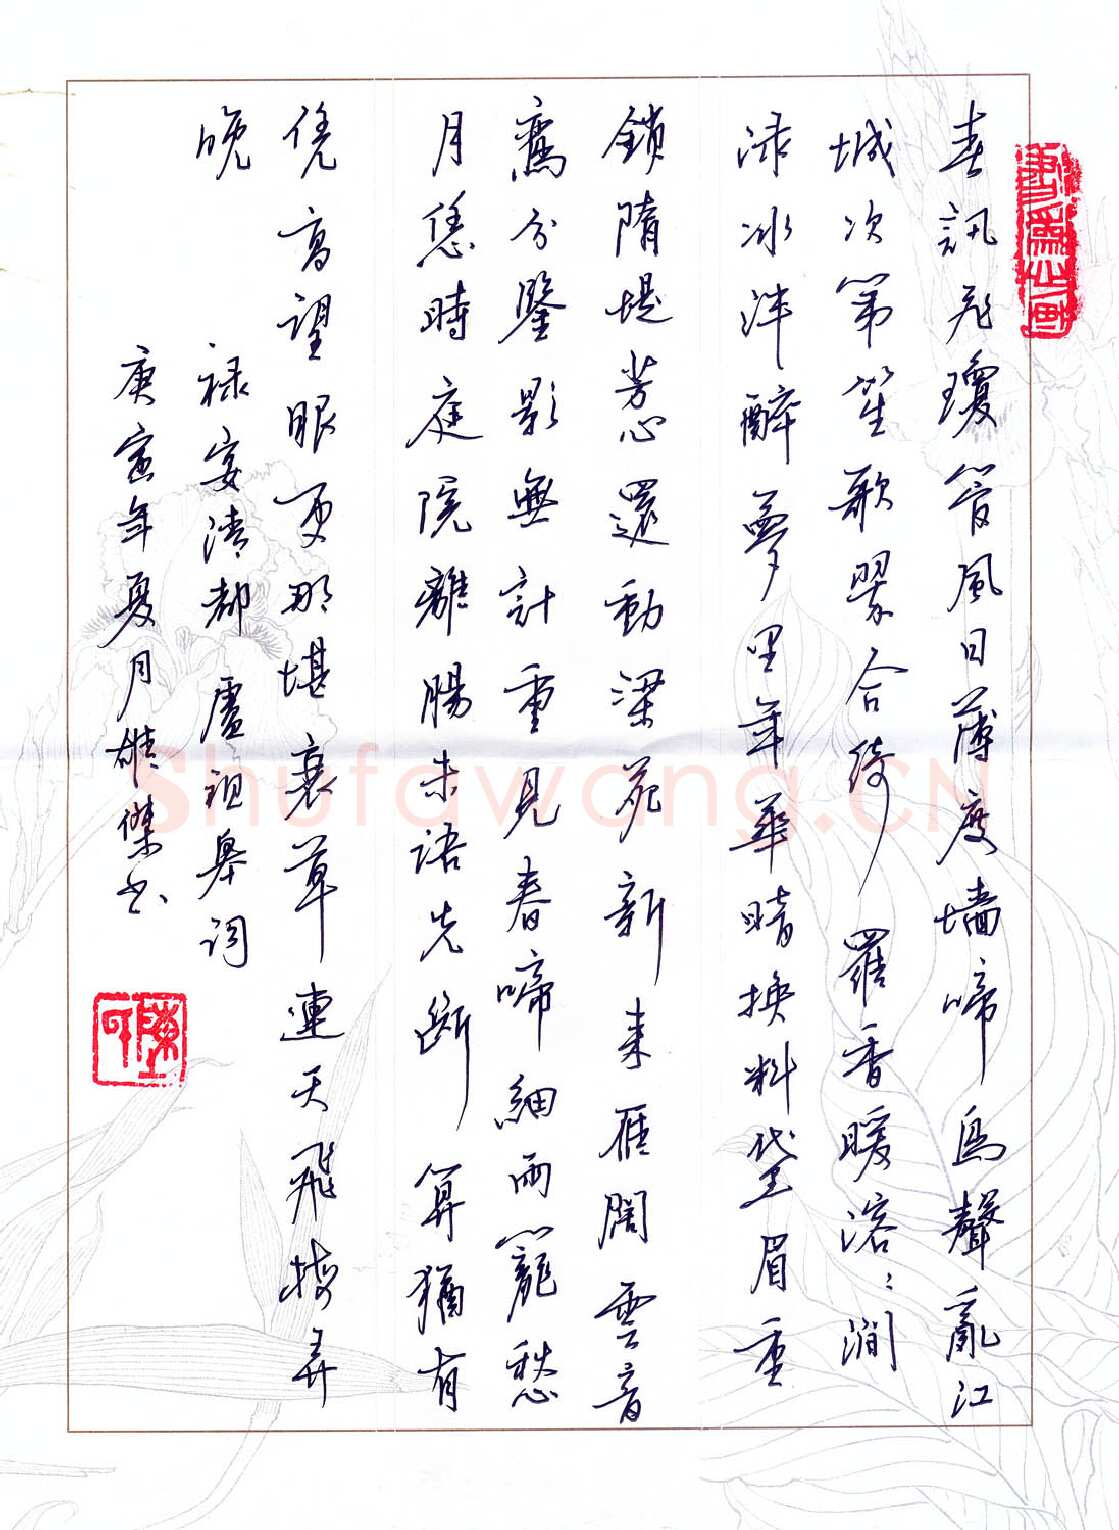 春訊飛瓊管風日薄度墻啼鳥聲亂江
城次第笙歌翠合綺羅香暖溶〻澗
渌冰泮醉夢里年華暗換料黛眉重
鎖隋堤芳心還動梁苑新來雁闊雲音
鸞分鑒影無計重見春啼細雨籠愁
月恁時庭院離腸未語先斷算猶有
凭高望眼更那堪衰草連天飛梅弄
晚
禄宴清都 盧祖皋詞
庚寅年夏月雄傑书
Shufawang.CN